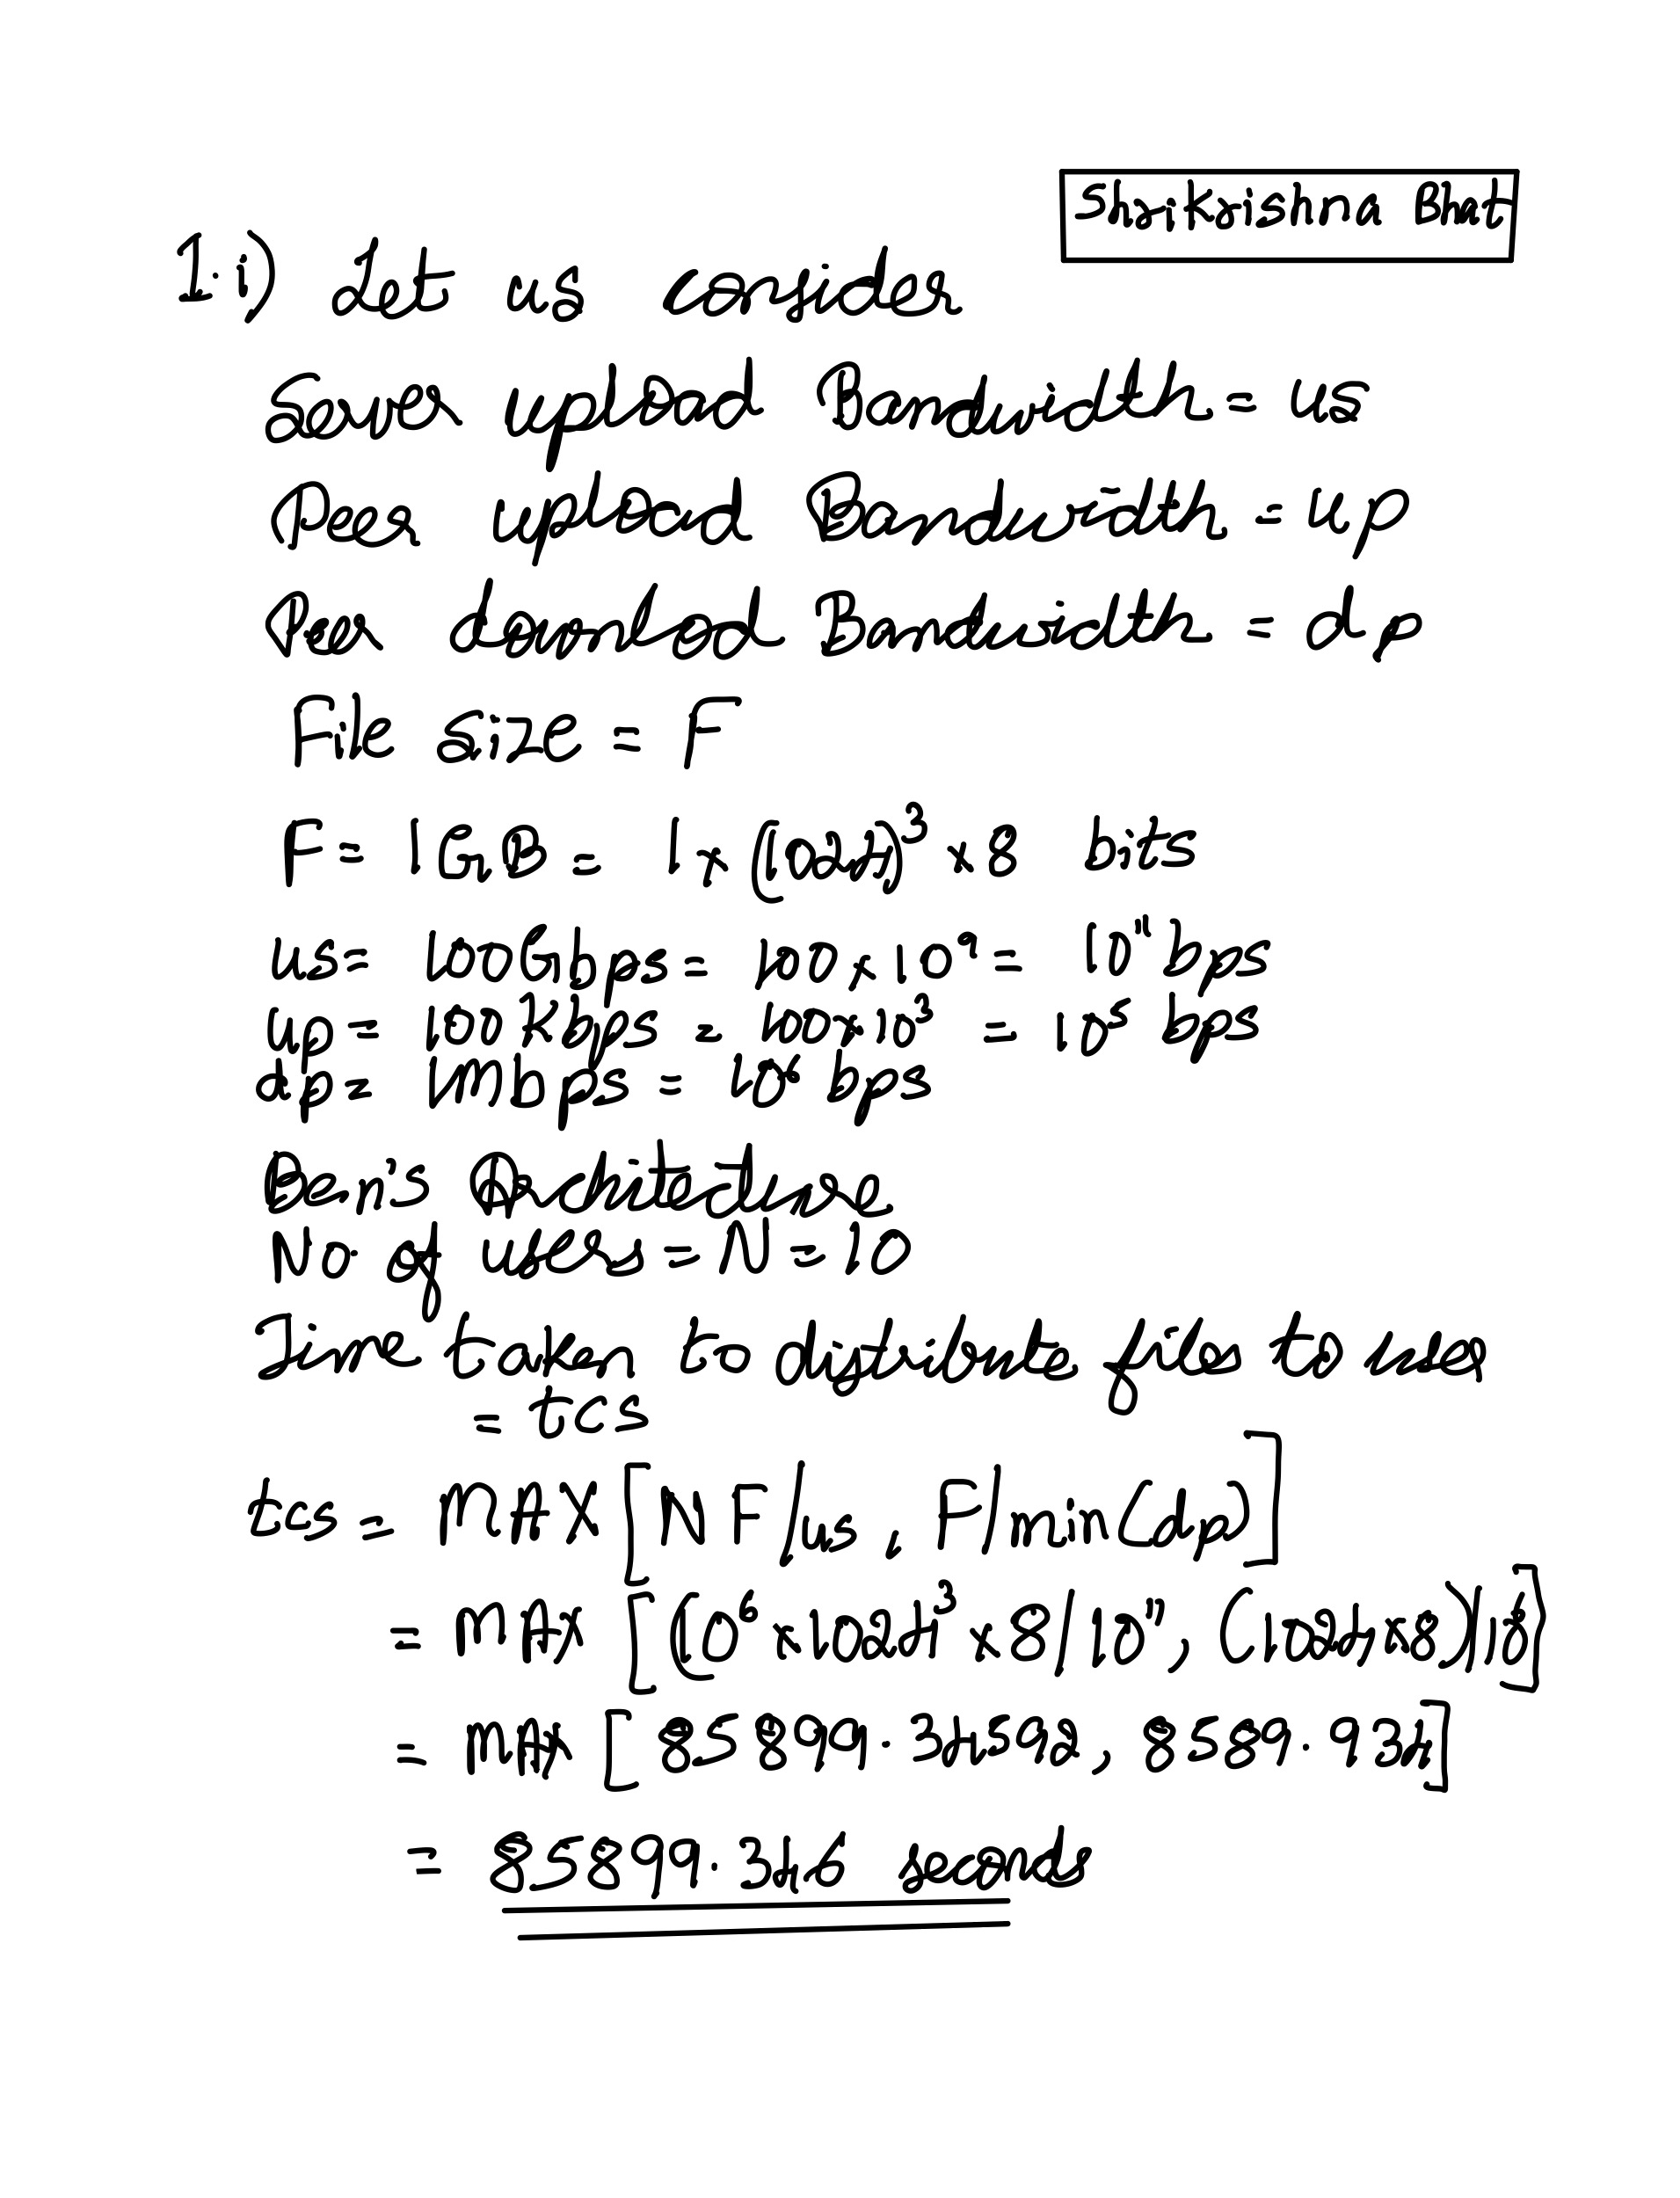 Shrikrishna Bhat
1. i) Let us consider
Server upload Bandwidth = us
Peer upload Bandwidth = up
Peer download Bandwidth = dp
File size = F
F = 1GB = 1 * (1024)³ x 8 bits
us = 100Gbps = 100 x 10⁹ = 10¹¹ bps
up = 100 Kbps = 100x10³ = 10⁵ bps
dp = 1Mbps = 10⁶ bps
Ben's Architecture
No. of users = N = 10
Time taken to distribute files to users
= tcs
tcs = MAX [NF/us, F/min(dp)]
= MAX [(10⁶ x 1024³ x 8/10¹¹, (1024 x 8)/10⁶]
= MAX [85899.34592, 8589.934]
= 85899.346 seconds